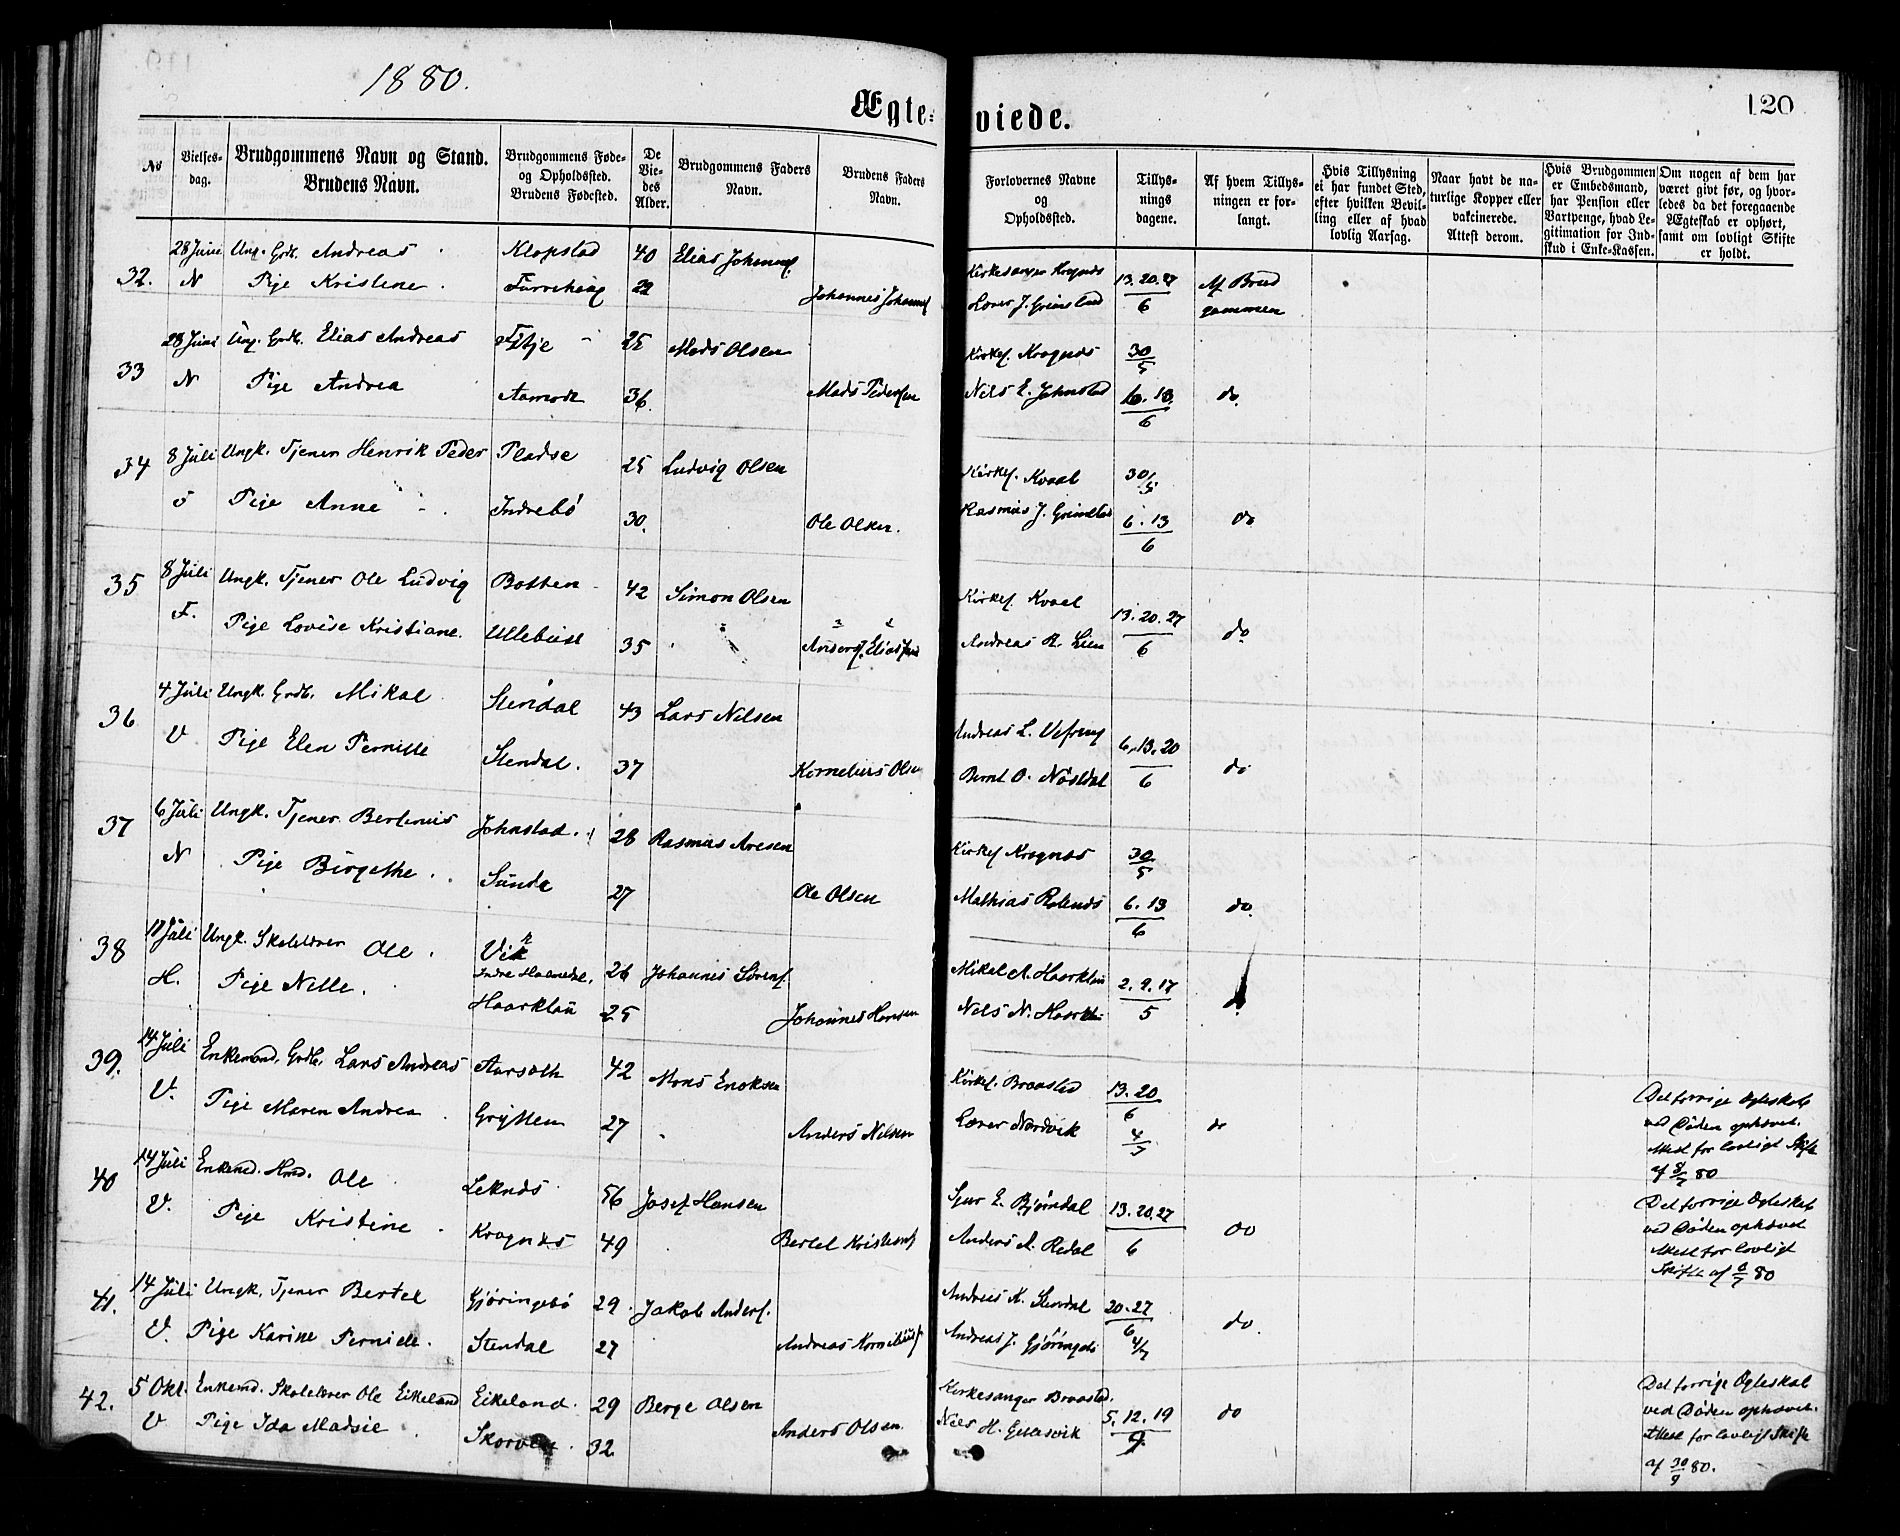 1880.
120
Ægteviede.
No
Vielsesdag.
Brudgommens Navn og Stand.
Brudens Navn.
Brudgommens Føde-
og Opholdssted.
Brudens Fødested.
De
Vie-
des
Alder.
Brudgommens Faders
Navn.
Brudens Faders
Navn.
Forlovernes Navne
og
Opholdssted.
Tillys-
nings
dagene.
Af hvem Tillys-
ningen er for-
langt.
Hvis Tillysning
ei har fundet Sted,
efter hvilken Bevil-
ling eller af hvad
lovlig Aarsag.
Naar havt de na-
turlige Kopper eller
vakcinerede.
Attest derom.
Hvis Brudgommen
er Embedsmand,
har Pension eller
Vartpenge, hvad Le-
gitimation for Ind-
skud i Enke-Kassen.
Om nogen af dem har
været givt før, og hvor-
ledes da det foregaaende
Ægteskab er ophørt,
samt om lovligt Skifte
er holdt.
32. 28 Juni Ung. Grdb. Andreas Klopstad 40 Elias Johannes. Kirkesanger Kragnæs 13. 20. 27 Af Brud
N Pige Kristine 22 Johannes Lærer J. Grimstad 6 gommen
33 28 Juni Ung. Grdb. Elias Andreas 25 Mads Olsen Kirkes. Kragnæs 30/5
N Pige Andrea 36. Mads Pedersen Nils E. Johnstad 6. 13/6 do
34 8 Juli Ungk. Tjener Henrik Peder Pladse 25 Ludvig Olsen Kirkes. Kvaal 30/5
Pige Anne Indrebö 30. Ole Olsen. Rasmus J. Grimstad 6. 13/6 do
35 8 Juli Ungk. Tjener Ole Ludvig Botten 42 Simon Olsen Kirkes. Kvaal 13. 20. 27
F. Pige Lovise Kristiane 35 Andreas R. Lien 6 do
36 4 Juli Ungk. Grdb. Mikal Stendal 43 Lars Nilsen Andreas L. 6. 13. 20
V Pige Elen Pernille Stendal. 37 Kornelius Olsen Bernt O. Nöstdal 6 do
37 6 Juli Ungk. Tjener Bertinius Johnstad. 28 Rasmus Aresen Kirkes Kragnæs 30/5
N Pige Birgethe Sunde 27 Ole Olsen Mathias 6. 13/6 do
38 11 Juli Ungk. Skolelærer Ole Vik
H. Pige Nille Haarklau 26 Johannes Sörens. Mikal A. Haarklau 2. 9. 17
25 Johannes Hansen Nils N. Haarklau 5
39. 14 Juli Enkemand. Grdb. Lars Andreas Aarseth 42 Mons Enoksen Kirkes. Braasted 13. 20/6 Det forrige Ægteskab
V. Pige Maren Andrea Grytten 27 Anders Nilsen Lærer Nordvik 4/7 do ved Döden ophævet.
Attest for lovligt Skifte
af 8/7 80
40 14 Juli Enkemd. Hmd. Ole Leknæs 56 Josef Hansen Sjur E. Bjørndal 13. 20. 27 Det forrige Ægteskab
V. Pige Kristine Kragnæs 49 Bertel Kristens Anders A. Redal 6 do ved Döden ophævet
Attest for lovligt
Skifte af 80
41. 14 Juli Ungk. Tjener Bertel Gjøringebö 29 Jakob Anders. Andreas K. Stendal 20. 27/6
V. Pige Karine Pernille. Stendal 27 Andreas Andreas J. Gjøringebö 4/7 do.
42. 5 Okt. Enkemd. Skolelærer Ole Eikeland Eikeland. 29 Berge Olsen Kirkesanger Braasted. Det forrige Ægteskab
V Pige Ida Madsie 32. Anders Olsen. Nils H. 5. 12. 19/9 do ved Döden ophævet.
Attest for lovligt Skifte
af 30/9 80.